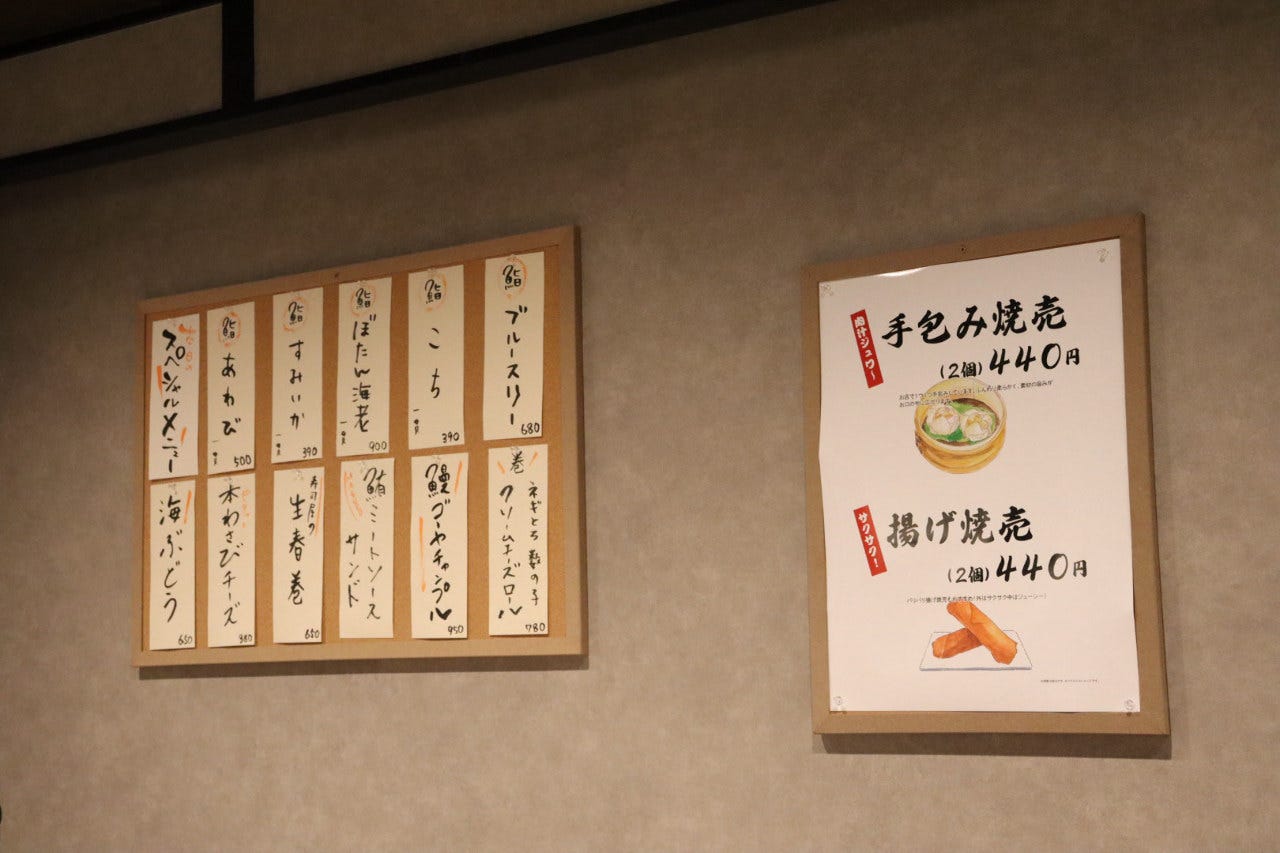 鮨 ブルースリー 680
鮨 こち 一貫 390
鮨 ぼたん海老 一貫 900
鮨 すみいか 一貫 390
鮨 あわび 一貫 500
スペシャルメニュー
巻 ネギとろ数の子
クリームチーズロール 780
鰻ゴーヤチャンプル 950
鮪ミートソース
サンド
寿司屋の
生春巻 650
本わさびチーズ 380
海ぶどう 650
肉汁ジュワ〜
手包み焼売
(2個) 440円
サクサク!
揚げ焼売
(2個) 440円